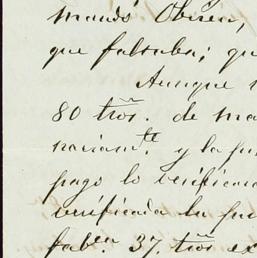 mandó Obién,
que faltaba; qu
Aunque
80 tros. de ma
nariamte. y la fu
pago lo verificar
verificada la fu
faben. 37. tros ex